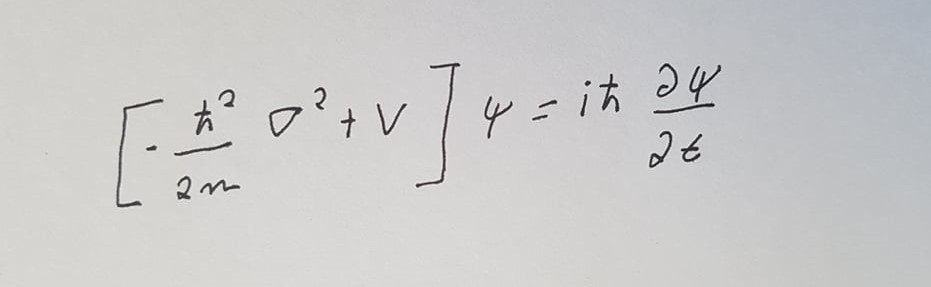 [-ħ²/2m ∇² + V] ψ = iħ ∂ψ/∂t